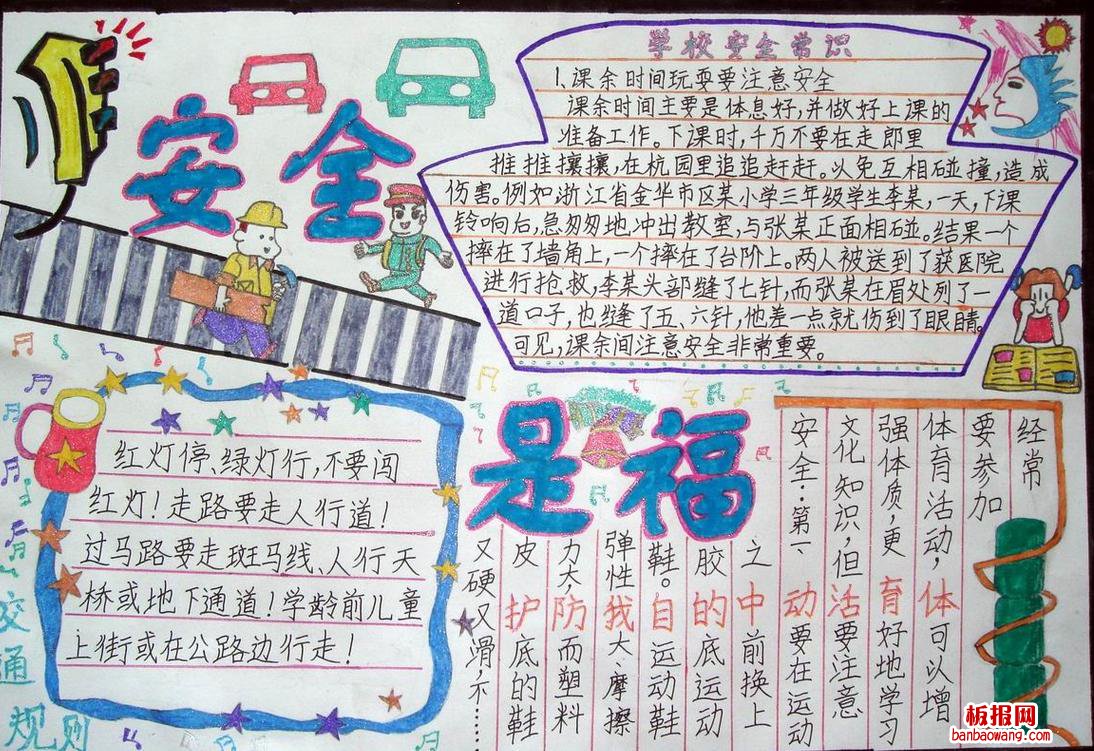 安全
是福
学校安全常识
1.课余时间玩耍要注意安全
课余时间主要是体息好,并做好上课的
准备工作。下课时,千万不要在走郎里
推推攘攘,在杭园里追追赶赶。以免互相碰撞,造成
伤害。例如浙江省金华市区某小学三年级学生李某,一天,下课
铃响后,急匆匆地冲出教室,与张某正面相碰。结果一个
摔在了墙角上,一个摔在了台阶上。两人被送到了获医院
进行抢救,李某头部缝了七针,而张某在眉处列了一
道口子,也缝了五、六针,他差一点就伤到了眼睛。
可见,课余间注意安全非常重要。
交通规则
红灯停、绿灯行,不要闯
红灯!走路要走人行道!
过马路要走斑马线、人行天
桥或地下通道!学龄前儿童
上街或在公路边行走!
体育活动中的自我防护
经常
要参加
体育活动,可以增
强体质,更好地学习
文化知识,但要注意
安全.第一、要在运动
之前换上
胶底运动
鞋。运动鞋
弹性大、摩擦
力大,而塑料
皮底的鞋
又硬又滑.不……
板报网
banbaowang.com